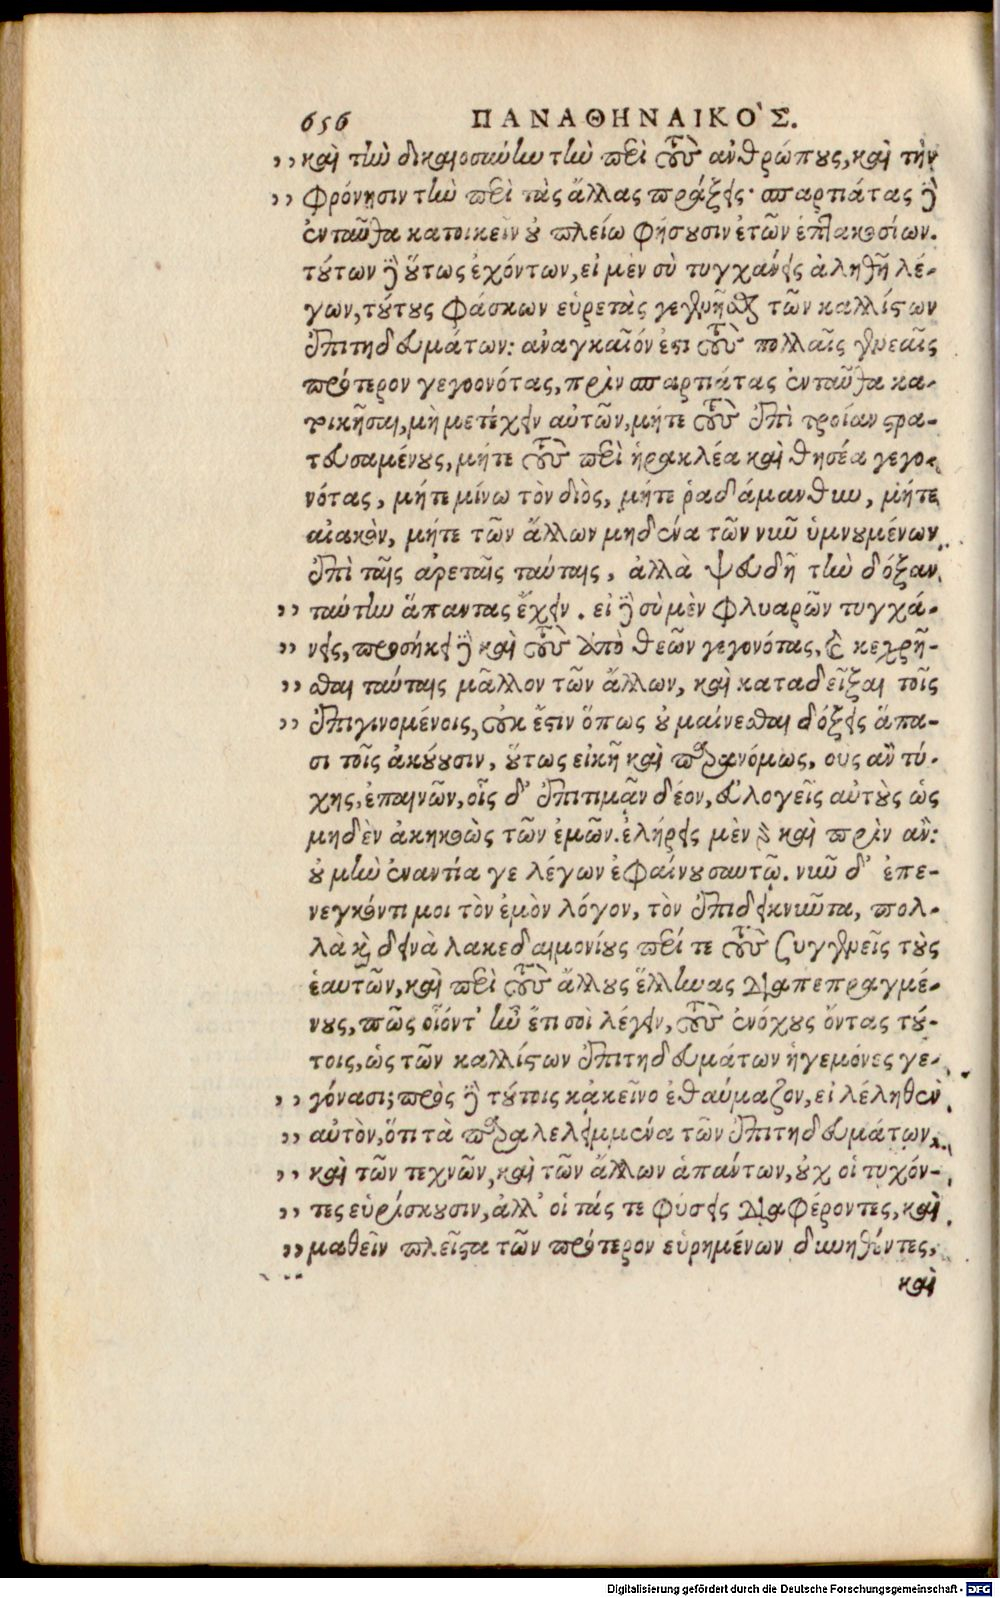 656 ΠΑΝΑΘΗΝΑΙΚΟ`Σ.
,, καὶ τὴν δικαιοσύνην τὴν περὶ τοὺς ἀνθρώπους, καὶ τὴν
,, φρόνησιν τὴν περὶ τὰς ἄλλας πράξεις· σπαρτιάτας δὲ
ἐνταῦθα κατοικεῖν οὐ πλείω φήσουσιν ἐτῶν ἑπτακοσίων.
τούτων δὲ οὕτως ἐχόντων, εἰ μὲν σὺ τυγχάνεις ἀληθῆ λέ-
γων, τούτους φάσκων εὑρετὰς γεγενῆσθαι τῶν καλλίστων
ἐπιτηδευμάτων: ἀναγκαῖόν ἐστι τοὺς πολλαῖς γενεαῖς
πρότερον γεγοονότας, πρὶν σπαρτιάτας ἐνταῦθα κα-
τοικῆσαι, μὴ μετέχειν αὐτῶν, μήτε τοὺς ἐπὶ τροίαν στρα-
τευσαμένους, μήτε τοὺς περὶ ἡρακλέα καὶ θησέα γεγο-
νότας, μήτε μίνω τὸν διὸς, μήτε ῥαδάμανθυν, μήτε
αἰακὸν, μήτε τῶν ἄλλων μηδένα τῶν νῦν ὑμνουμένων
ἐπὶ ταῖς ἀρεταῖς ταύταις, ἀλλὰ ψευδῆ τὴν δόξαν
,, ταύτην ἅπαντας ἔχειν. εἰ δὲ σὺ μὲν φλυαρῶν τυγχά-
,, νεις, προσήκει δὲ καὶ τοὺς ἀπὸ θεῶν γεγονότας, καὶ κεχρῆ-
,, σθαι ταύταις μᾶλλον τῶν ἄλλων, καὶ καταδεῖξαι τοῖς
,, ἐπιγινομένοις, οὐκ ἔστιν ὅπως οὐ μαίνεσθαι δόξεις ἅπα-
σι τοῖς ἀκούουσιν, οὕτως εἰκῆ καὶ παρανόμως, ους ἂν τύ-
χης, ἐπαινῶν, οἷς δ' ἐπιτιμᾶν δέον, εὐλογεῖς αὐτοὺς ὡς
μηδὲν ἀκηκοὼς τῶν ἐμῶν. ἐλήρεις μὲν γὰρ καὶ πρὶν ἄν:
οὐ μὴν ἐναντία γε λέγων ἐφαίνου σαυτῷ. νῦν δ' ἐπε-
νεγκόντι μοι τὸν ἐμὸν λόγον, τὸν ἐπιδεικνυῶτα, πολ-
λὰ καὶ δεινὰ λακεδαιμονίους περί τε τοὺς ζυγγενεῖς τοὺς
ἑαυτῶν, καὶ περὶ τοὺς ἄλλους ἕλληνας διαπεπραγμέ-
νους, πῶς οἷόντ' ἦν ἔτι σοὶ λέγειν, τοὺς ἐνόχους ὄντας τού-
τοις, ὡς τῶν καλλίστων ἐπιτηδευμάτων ἡγεμόνες γε-
,, γόνασι; πρὸς δὲ τούτοις κἀκεῖνο ἐθαύμαζον, εἰ λέληθεν
,, αὐτὸν, ὅτι τὰ παραλελειμμένα τῶν ἐπιτηδευμάτων,
,, καὶ τῶν τεχνῶν, καὶ τῶν ἄλλων ἁπάντων, οὐχ οἱ τυχόν-
,, τες εὑρίσκουσιν, ἀλλ' οἱ τάς τε φύσεις διαφέροντες, καὶ
,, μαθεῖν πλεῖστα τῶν πρότερον εὑρημένων δυνηθέντες,
καὶ
Digitalisierung gefördert durch die Deutsche Forschungsgemeinschaft - DFG